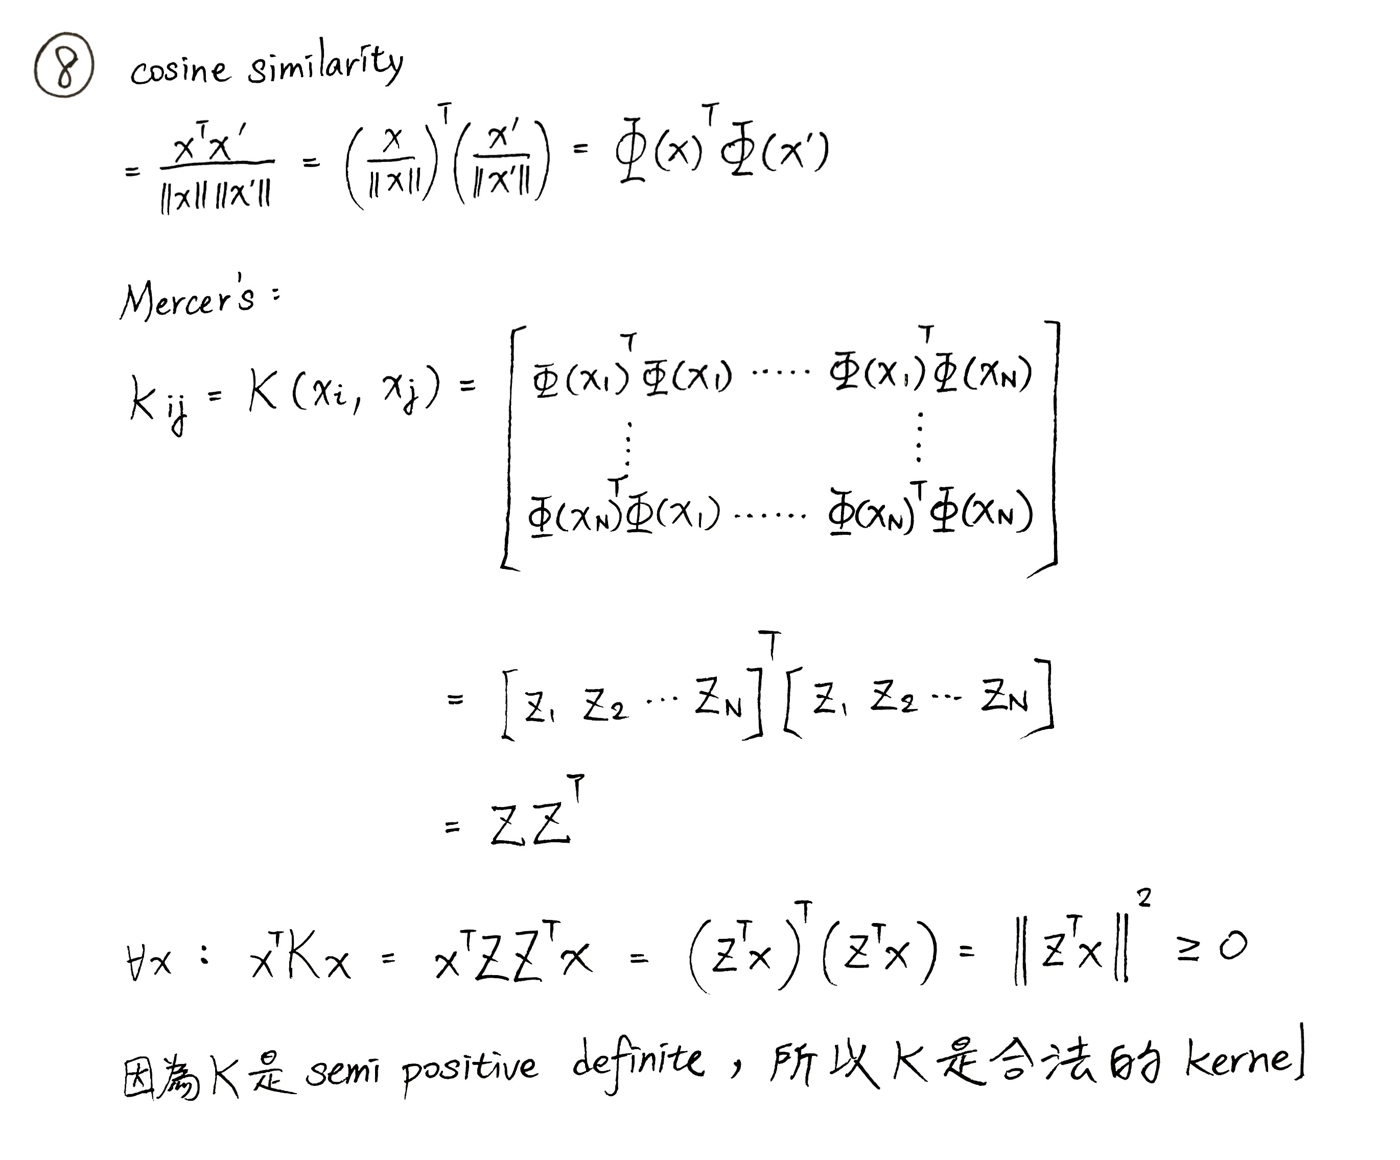 ⑧ cosine similarity
= xᵀx' / ‖x‖ ‖x'‖ = (x / ‖x‖)ᵀ (x' / ‖x'‖) = Φ(x)ᵀ Φ(x')
Mercer's :
kij = K(xi, xj) = [ Φ(x₁)ᵀ Φ(x₁) ····· Φ(x₁)ᵀ Φ(xN)
⋮ ⋮
Φ(xN)ᵀ Φ(x₁) ······ Φ(xN)ᵀ Φ(xN) ]
= [z₁ z₂ ··· zN]ᵀ [z₁ z₂ ··· zN]
= ZZᵀ
∀x : xᵀKx = xᵀZZᵀx = (zᵀx)ᵀ (zᵀx) = ‖zᵀx‖² ≥ 0
因為K是 semi positive definite，所以K是合法的 kernel